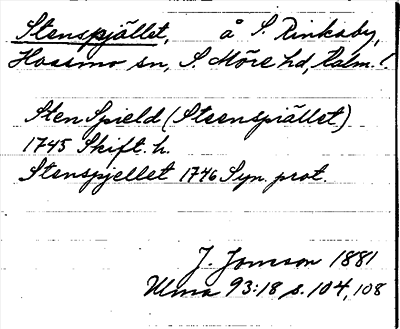 Stenspjället, å S. Rinkaby,
Hossmo sn, S. Möre hd, Kalm. l.
Sten Spield (Steenspiället)
1745 Skift. h.
Stenspjellet 1746 Syn. prot.
J. Jonsson 1881
Ulma 93:18 s. 104, 108